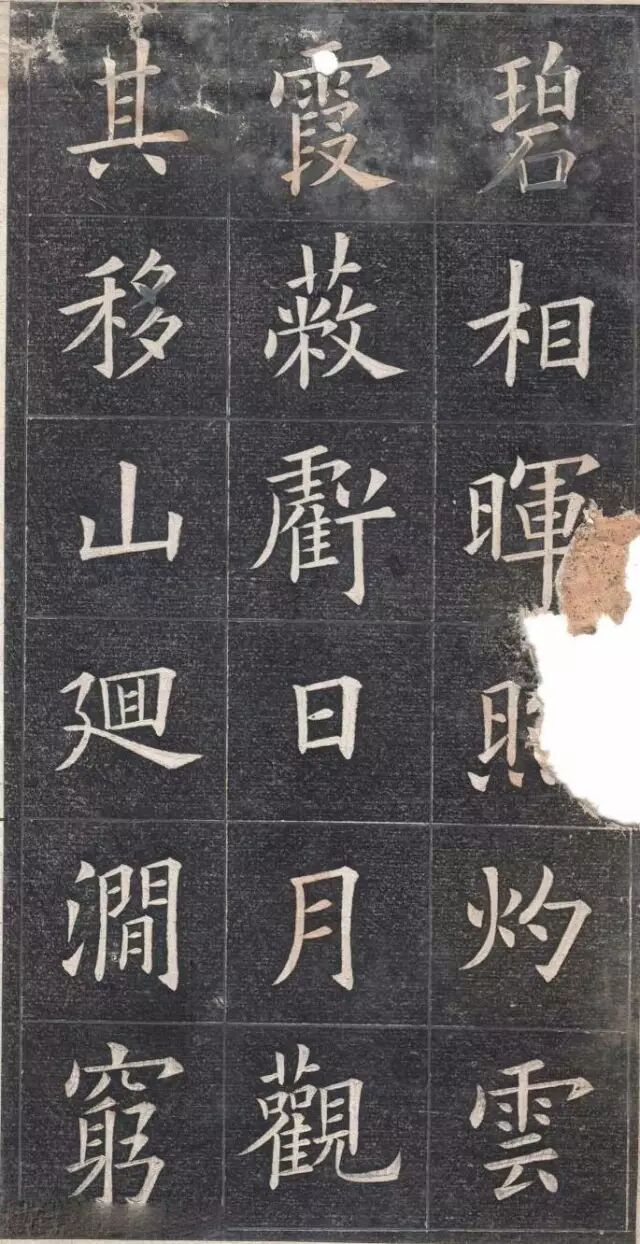 碧相暉照灼雲
霞蔽虧日月觀
其移山廻澗窮